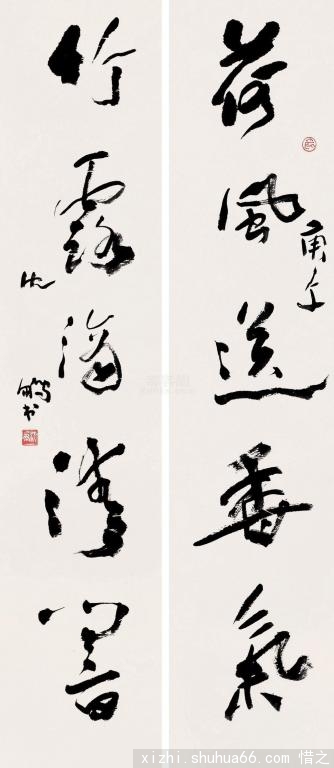 荷風送香氣
庚午
竹露滴清響
沈鵬書
xizhi.shuhua66.com 惜之